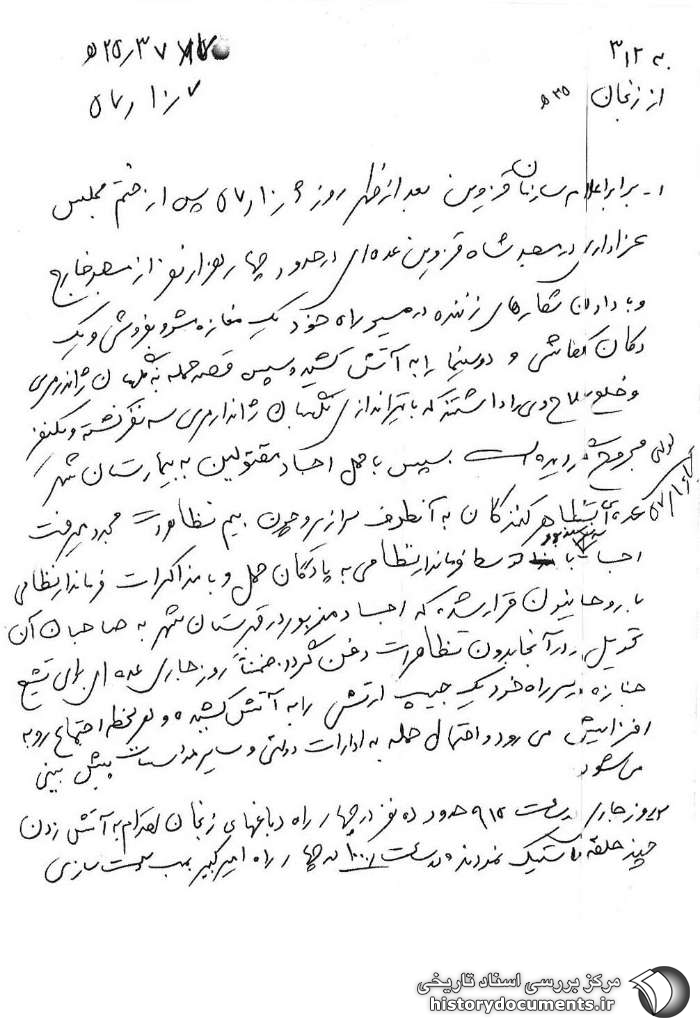 به ۳۱۲
از زنجان ۳۵ ه
۲۵/۳۷ ه
۷/۱۰/۵۷
۱- برابر اعلام سازمان قزوین بعدازظهر روز ۶/۱۰/۵۷ پس از ختم مجلس
عزاداری در مسجد شاه قزوین عده‌ای در حدود چهار هزار نفر از مسجد خارج
و با دادن شعارهای زننده در مسیر راه خود یک مغازه مشروبفروشی و یک
دکان کفاشی و دو سینما را به آتش کشیده و سپس قصد حمله به نگهبان ژاندارمری
و خلع سلاح وی را داشتند که با تیراندازی نگهبان ژاندارمری سه نفر کشته و یکنفر
مجروح گردیده است سپس با حمل اجساد مقتولین به بیمارستان شهر
عده‌ای تظاهر کنندگان به آنطرف سرازیر و چون بیم تظاهرات مجدد میرفت
اجساد توسط فرماندار نظامی به پادگان حمل و با مذاکرات فرماندار نظامی
با روحانیون قرار شده که اجساد مزبور در قبرستان شهر به صاحبان آن
تحویل و در آنجا بدون تظاهرات دفن گردد ضمناً روز جاری عده‌ای برای تشیع
جنازه در سر راه خود یک جیپ ارتشی را به آتش کشیده و هر لحظه اجتماع رو به
افزایش می رود و احتمال حمله به ادارات دولتی و سایر تأسیسات پیش بینی
می‌شود
۲- روز جاری ساعت ۹۱۵ حدود ده نفر در چهار راه دباغهای زنجان اقدام به آتش زدن
چند حلقه لاستیک نمودند و ساعت ۱۰۰۰ در چهار راه امیرکبیر بمب دست سازی
۵۷/۱۰/۷
مرکز بررسی اسناد تاریخی
historydocuments.ir